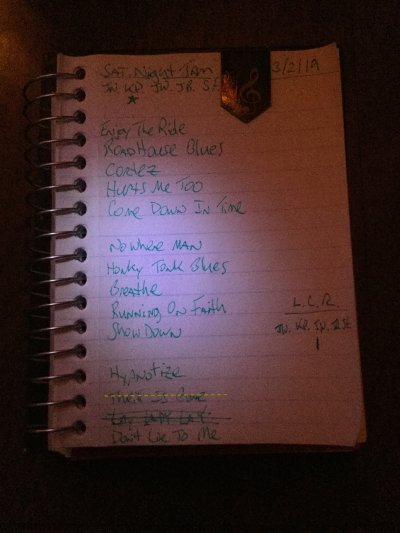 SAT. Night Jam 3/2/19
JW. KR. JW. JR. St.
Enjoy The Ride
ROADHOUSE Blues
Cortez
Hurts Me Too
Come Down In Time
Nowhere MAN
Honky Tonk Blues
Breathe
RUNNING ON FAITH
SHOWDOWN
L.C.R.
JW. KR. JW. JR. St.
Hypnotize
Thrill Is Gone
Don't Lie To Me